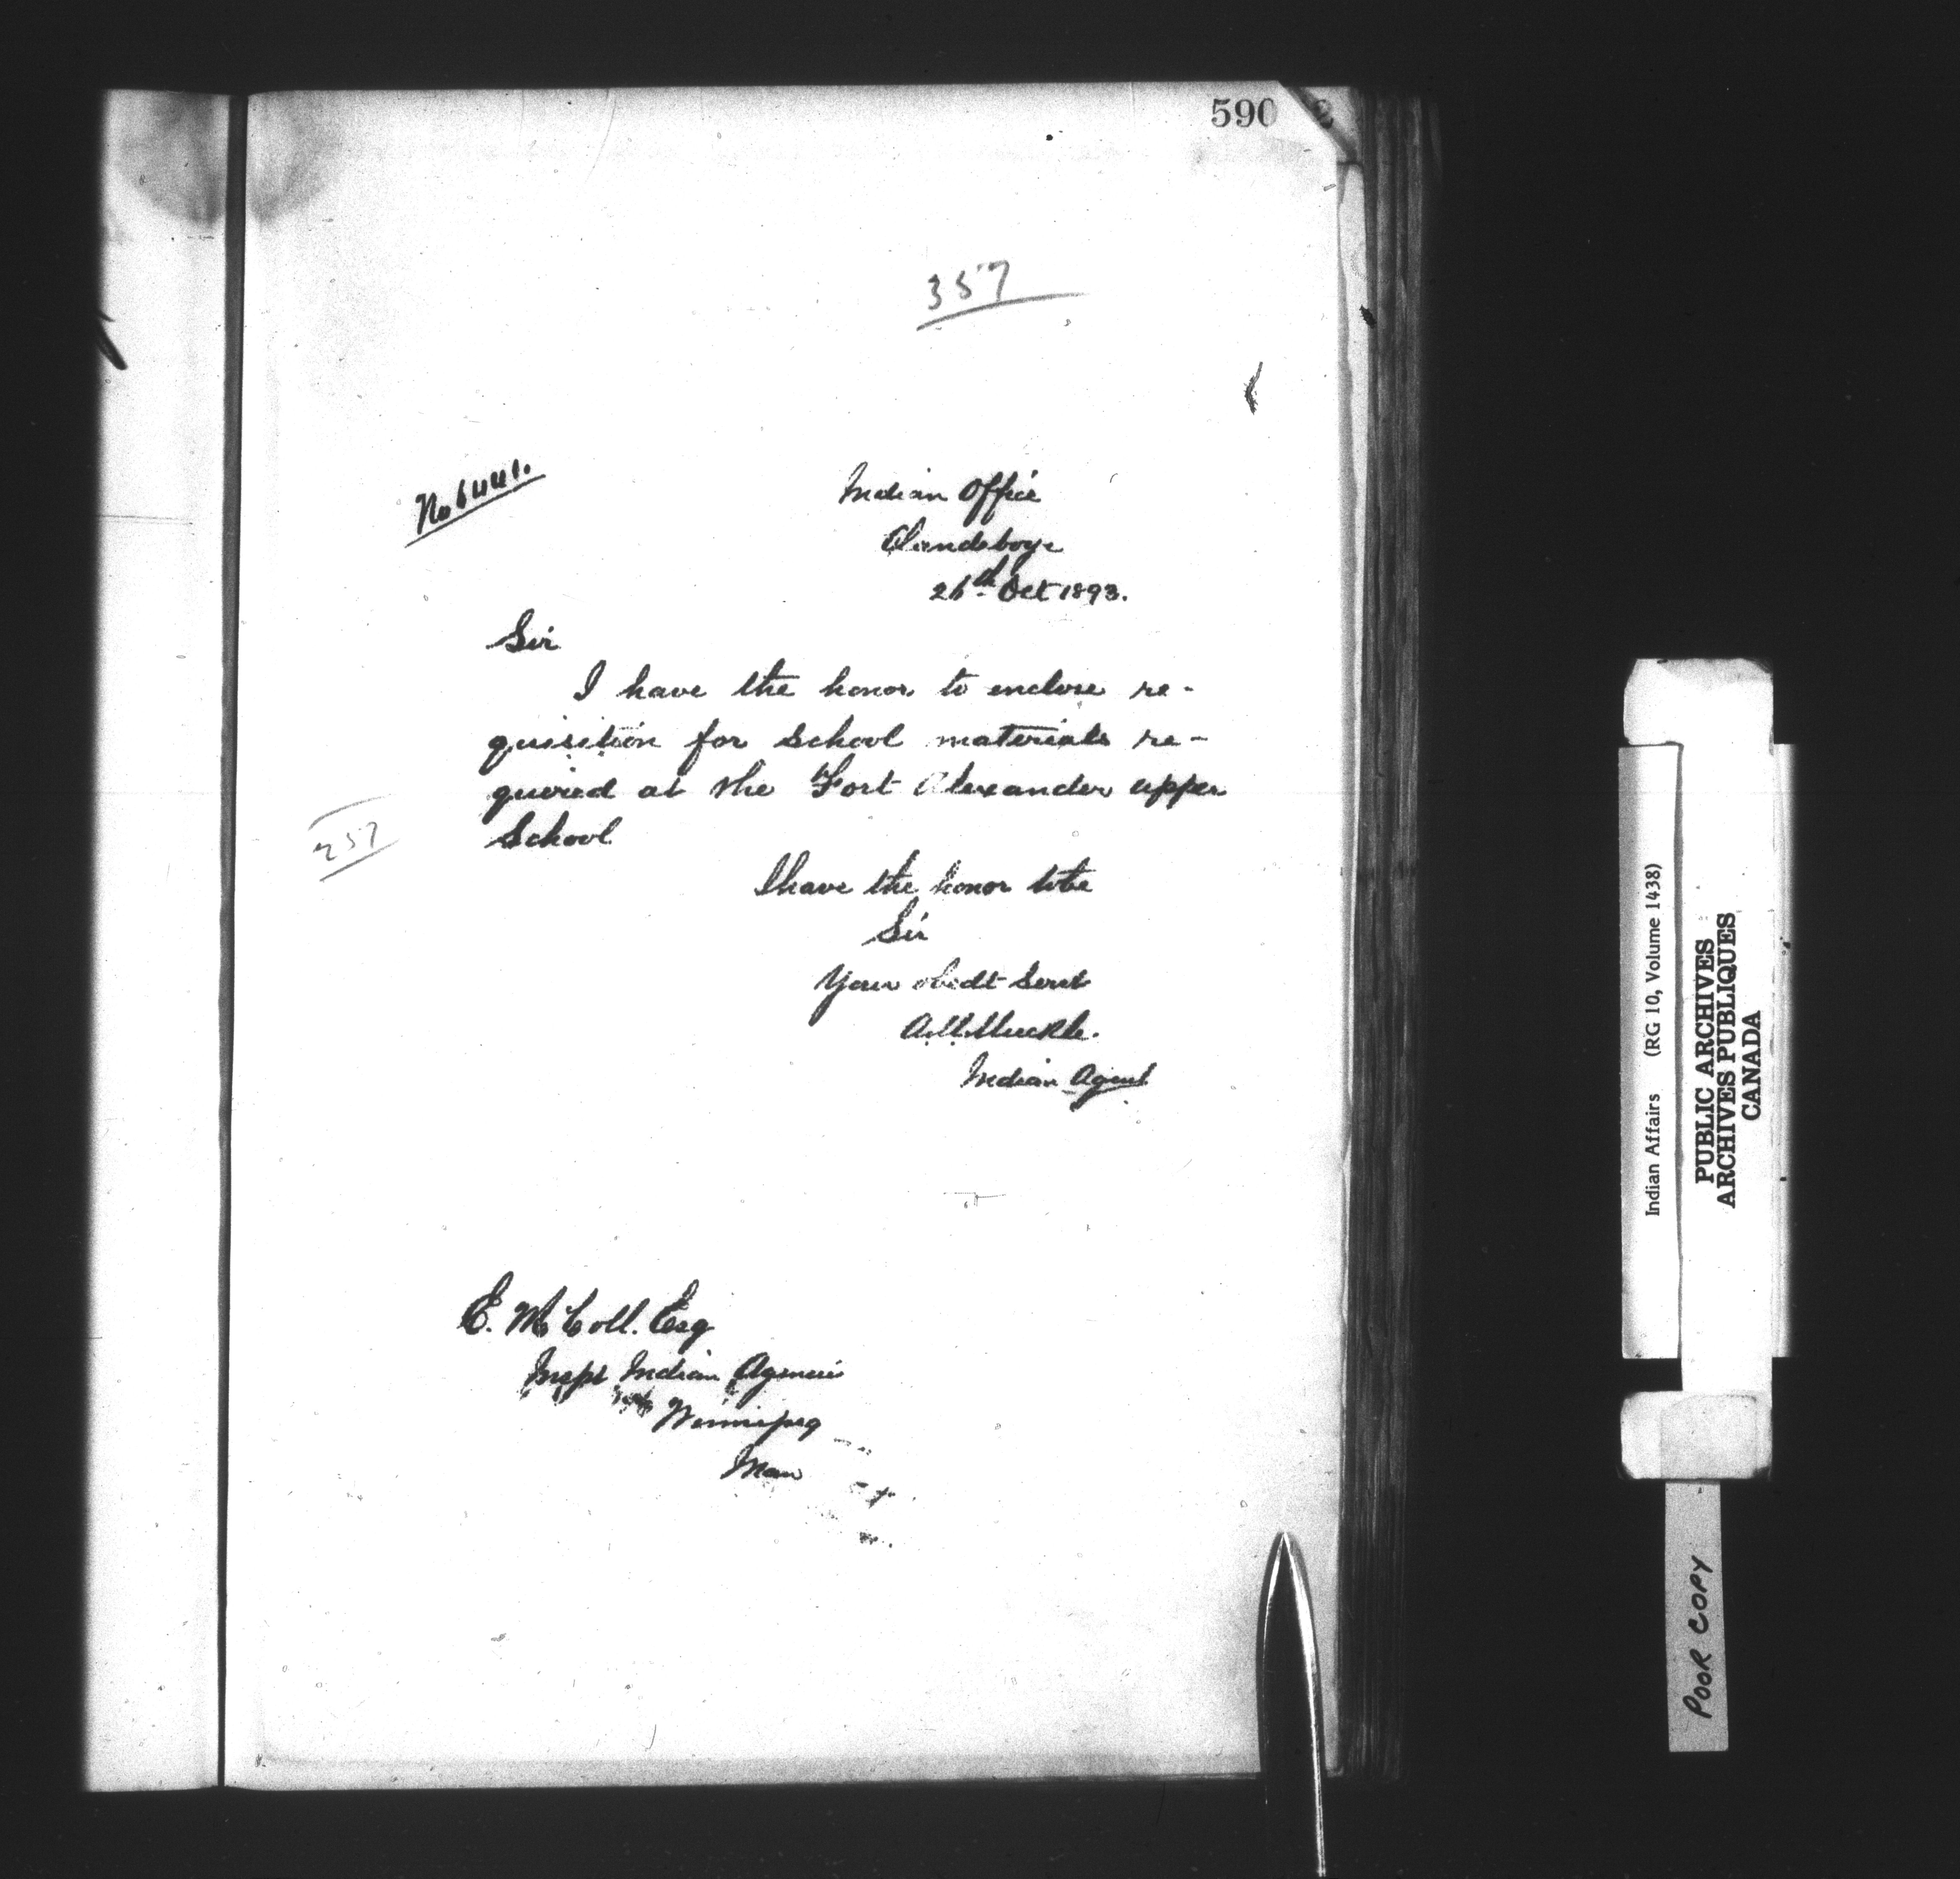 590
357
No 6441.
Indian Office
Clandeboye
26th Oct 1893.
Sir
I have the honor to enclose re-
quisition for School materials re-
quired at the Fort Alexander upper
School
257
I have the honor to be
Sir
Your obedt Servt
A.M. Muckle.
Indian Agent
E. McColl. Esq
Inspr Indian Agencies
Winnipeg
Man
Indian Affairs (RG 10, Volume 1438)
PUBLIC ARCHIVES
ARCHIVES PUBLIQUES
CANADA
POOR COPY